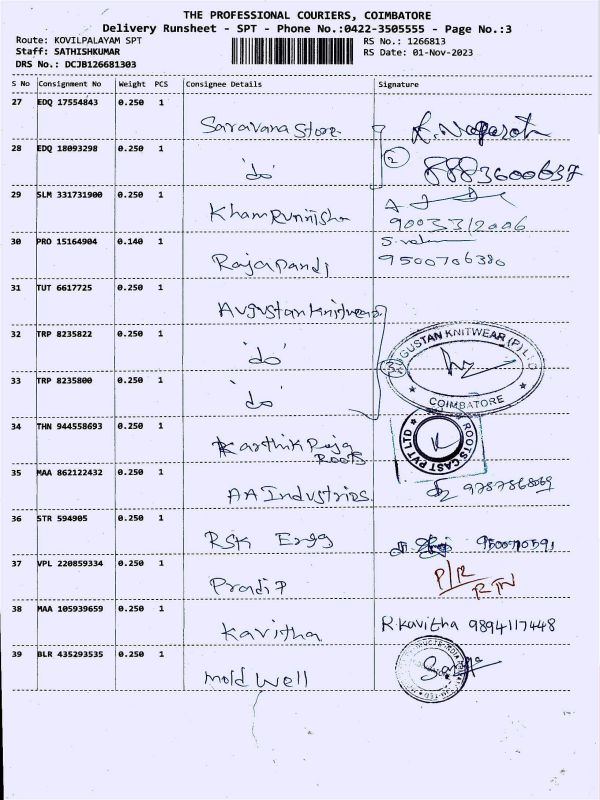 THE PROFESSIONAL COURIERS, COIMBATORE
Delivery Runsheet - SPT - Phone No.:0422-3505555 - Page No.:3
Route: KOVILPALAYAM SPT
Staff: SATHISHKUMAR
DRS No.: DCJB126681303
RS No.: 1266813
RS Date: 01-Nov-2023
S No Consignment No Weight PCS Consignee Details Signature
27 EDQ 17554843 0.250 1
Saravana Store
28 EDQ 18093298 0.250 1
'do' 2 8883600637
29 SLM 331731900 0.250 1
KhamRunnisha 9003312006
30 PRO 15164904 0.140 1
Rajapandi 9500706380
31 TUT 6617725 0.250 1
Augustan Knitwears
32 TRP 8235822 0.250 1
'do'
GUSTAN KNITWEAR (P) LTD
COIMBATORE
33 TRP 8235800 0.250 1
'do'
34 THN 944558693 0.250 1
Karthik Raja
Roots
ROOTS CAST PVT LTD
35 MAA 862122432 0.250 1
AA Industries
36 STR 594905 0.250 1
RSK Engg
37 VPL 220859334 0.250 1
Pradip P/R
RTN
38 MAA 105939659 0.250 1
Kavitha R.Kavitha 9894117448
39 BLR 435293535 0.250 1
Mold Well